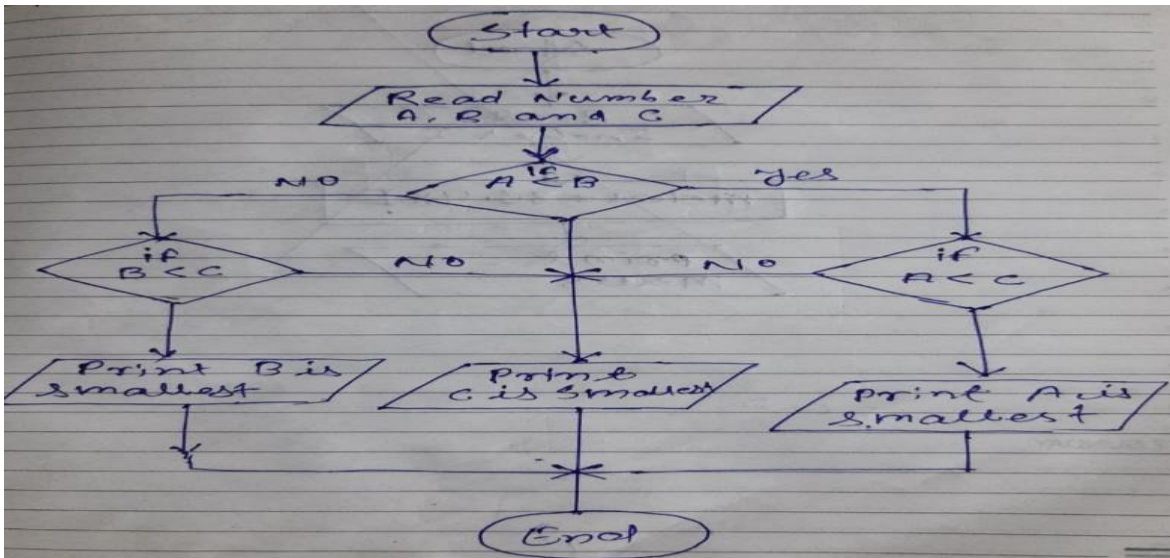 Start
Read Number
A, B and C
if
A < B
NO
Yes
if
B < C
NO
NO
if
A < C
Print B is
smallest
Print
C is Smallest
Print A is
smallest
End